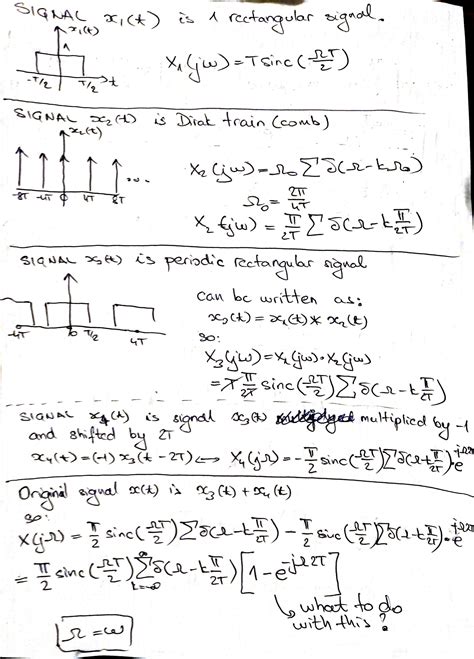 SIGNAL x₁(t) is 1 rectangular signal.
x₁(t)
1
-T/2 T/2 t
X₁(jω) = T sinc(ΩT/2)
SIGNAL x₂(t) is Dirak train (comb)
x₂(t)
-8T -4T 0 4T 8T
...
X₂(jω) = Ω₀ ∑ δ(Ω - kΩ₀)
Ω₀ = 2π/4T
X₂(jω) = π/2T ∑ δ(Ω - k π/2T)
SIGNAL x₃(t) is periodic rectangular signal
-4T 0 T/2 4T
can be written as:
x₃(t) = x₁(t) * x₂(t)
so:
X₃(jω) = X₁(jω) · X₂(jω)
= T π/2T sinc(ΩT/2) ∑ δ(Ω - k π/2T)
SIGNAL x₄(t) is signal x₃(t) multiplied by -1
and shifted by 2T
x₄(t) = (-1) x₃(t - 2T) ⟷ X₄(jΩ) = -π/2 sinc(ΩT/2) ∑ δ(Ω - k π/2T) · e^-jΩ2T
Original signal x(t) is x₃(t) + x₄(t)
so:
X(jΩ) = π/2 sinc(ΩT/2) ∑ δ(Ω - k π/2T) - π/2 sinc(ΩT/2) ∑ δ(Ω - k π/2T) · e^-jΩ2T
= π/2 sinc(ΩT/2) ∑ k=-∞ ∞ δ(Ω - k π/2T) [1 - e^-jΩ2T]
↳ what to do
with this?
Ω = ω